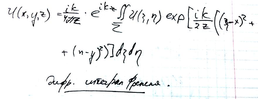 U(x,y,z) = ik/2πz · e^{ikz} ∬_Σ U(ξ,η) exp[ik/2z [(ξ-x)² +
+ (η-y)²]] dξ dη
дифр. интеграл Френеля.